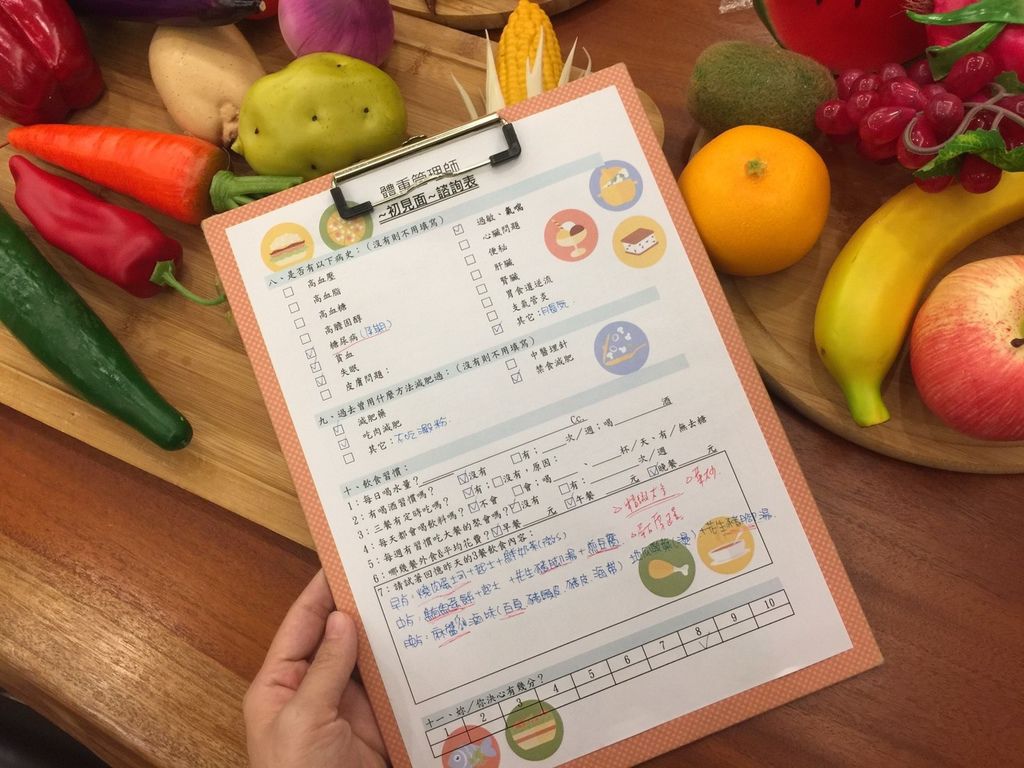 體重管理師
~初見面~諮詢表
八、是否有以下病史：(沒有則不用填寫)
高血壓
高血脂
高血糖
高膽固醇
糖尿病(孕期)
貧血
失眠
皮膚問題：
過敏、氣喘
心臟問題
便秘
肝臟
腎臟
胃食道逆流
支氣管炎
其它：
九、過去曾用什麼方法減肥過：(沒有則不用填寫)
減肥藥
吃肉減肥
其它：不吃澱粉
中醫埋針
禁食減肥
十、飲食習慣：
1：每日喝水量？ CC。
2：有喝酒習慣嗎？ 沒有 有： 次/週；喝 酒
3：三餐有定時吃嗎？ 有；沒有，原因：
4：每天都會喝飲料嗎？ 不會 會；喝 杯/天、有/無去糖
5：每週有習慣吃大餐的聚會嗎？ 沒有 有： 次/週
6：哪幾餐外食&平均花費？ 早餐 元 午餐 元 晚餐 元
7：請試著回憶昨天的3餐飲食內容：
早方：燒肉蛋土司+起士+鮮奶茶(微糖)
中方：鮪魚蛋餅+起士
晚方：麻醬 滷味(百頁.豬頭皮.豬皮.海帶)
十一、妳/你決心有幾分？
1 2 3 4 5 6 7 8 9 10